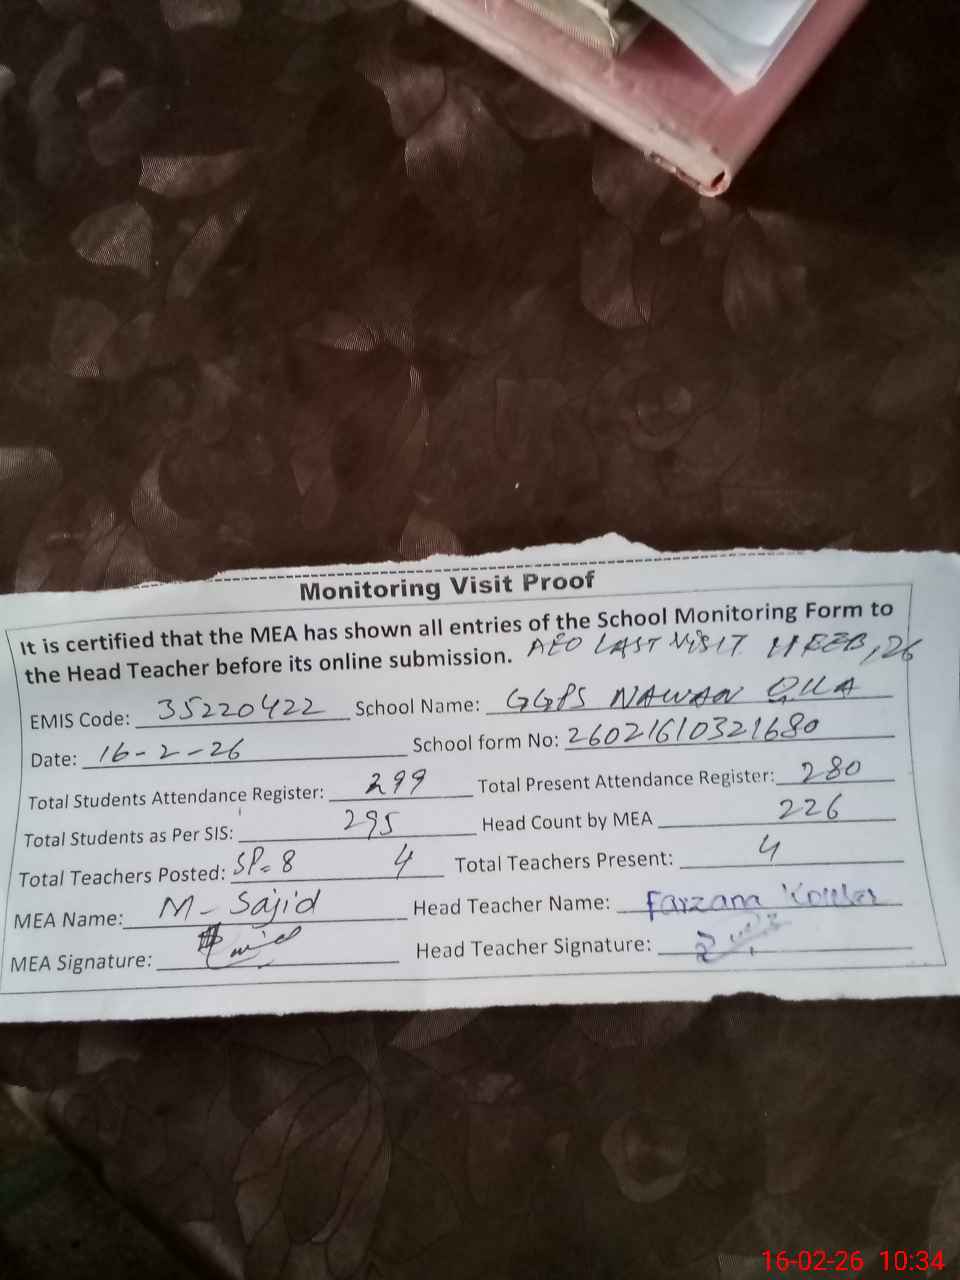 Monitoring Visit Proof
It is certified that the MEA has shown all entries of the School Monitoring Form to
the Head Teacher before its online submission. AEO LAST VISIT 11 FEB, 26
EMIS Code: 35220422 School Name: GGPS NAWAN QILA
Date: 16-2-26 School form No: 26021610321680
Total Students Attendance Register: 299 Total Present Attendance Register: 280
Total Students as Per SIS: 295 Head Count by MEA 226
Total Teachers Posted: SP= 8 4 Total Teachers Present: 4
MEA Name: M- Sajid Head Teacher Name: Farzana
MEA Signature: Head Teacher Signature:
16-02-26 10:34